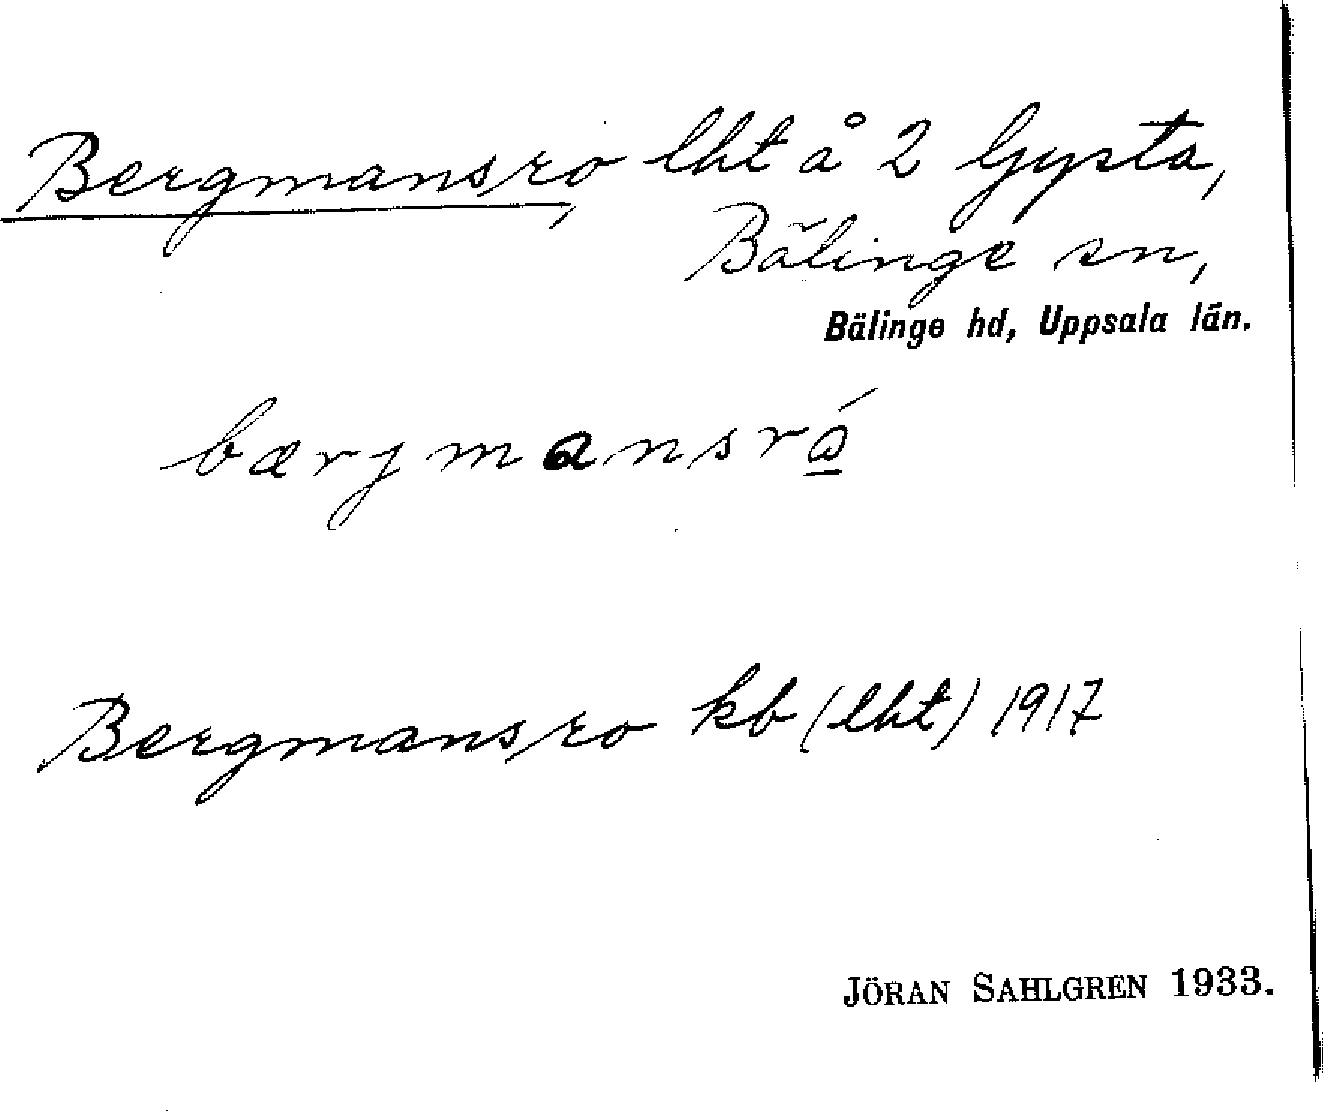 Bergmansro, lht å 2 Gysta,
Bälinge sn,
Bälinge hd, Uppsala län.
bærjmansró̲
Bergmansro kb (lht) 1917
JÖRAN SAHLGREN 1933.